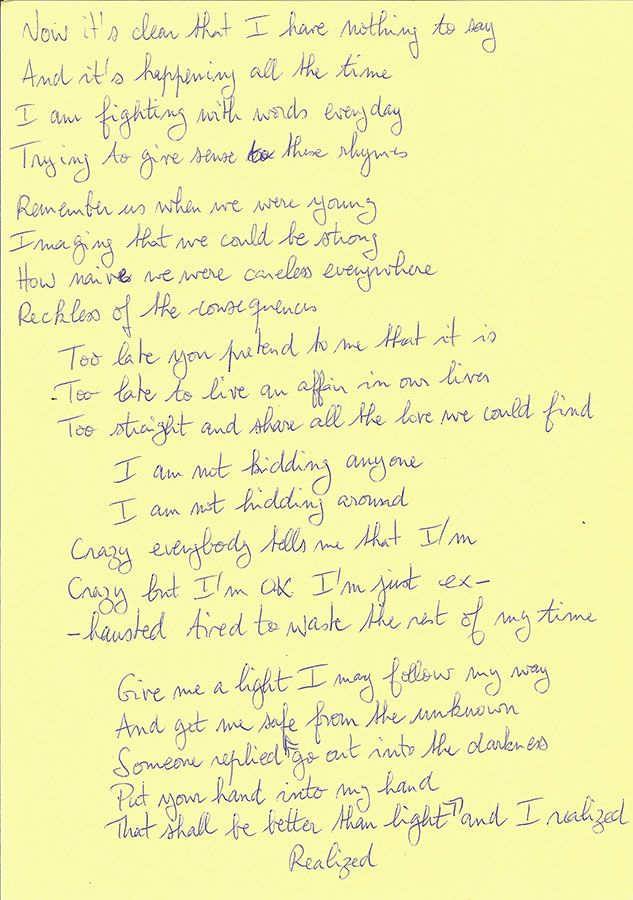 Now it's clear that I have nothing to say
And it's happening all the time
I am fighting with words everyday
Trying to give sense to these rhymes
Remember us when we were young
Imaging that we could be strong
How naive we were careless everywhere
Reckless of the consequences
Too late you pretend to me that it is
Too late to live an affair in our lives
Too straight and share all the love we could find
I am not kidding anyone
I am not kidding around
Crazy everybody tells me that I'm
Crazy but I'm OK I'm just ex-
-hausted tired to waste the rest of my time
Give me a light I may follow my way
And get me safe from the unknown
Someone replied "go out into the darkness
Put your hand into my hand
That shall be better than light" and I realized
Realized